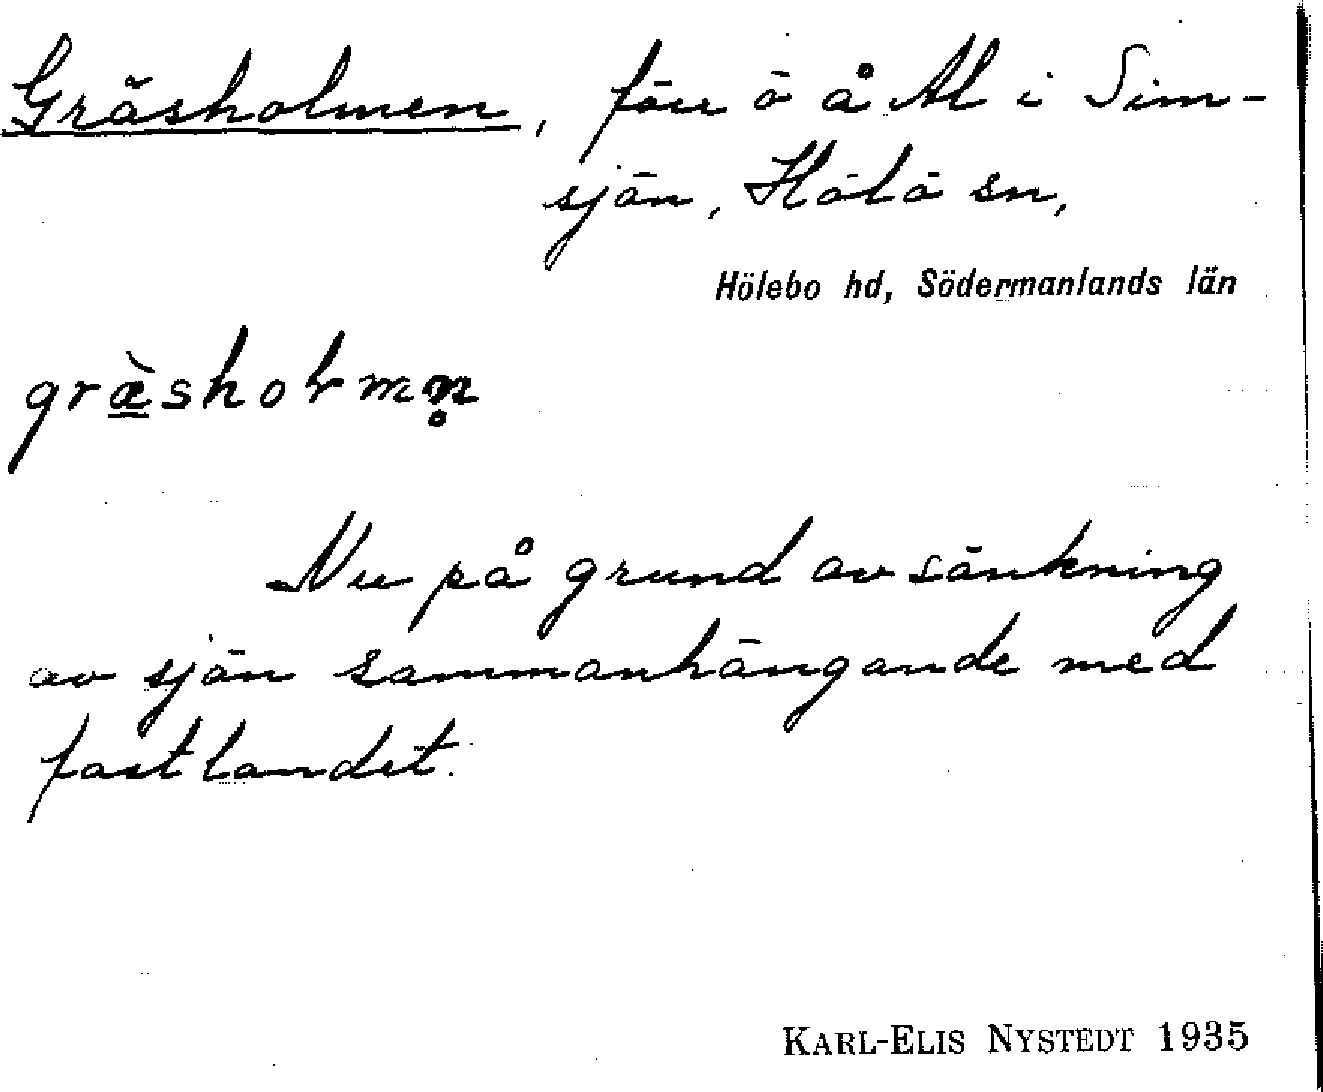 Gräsholmen, förr ö å Al i Sim-
sjön, Hölö sn,
Hölebo hd, Södermanlands län
græ̠̀shoɫmn̥
Nu på grund av sänkning
av sjön sammanhängande med
fastlandet.
KARL-ELIS NYSTEDT 1935